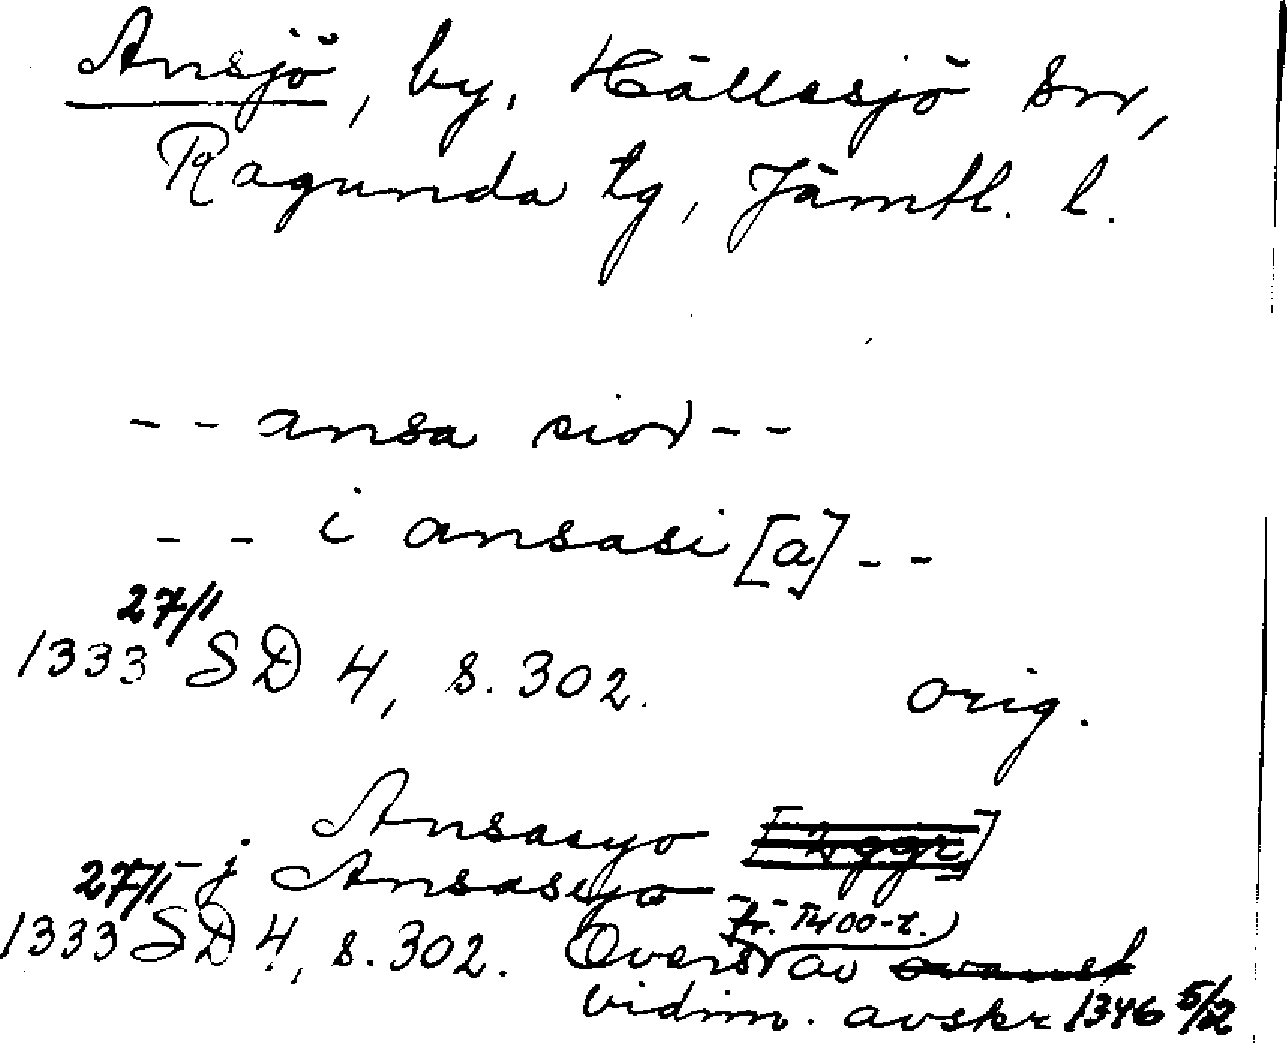 Ansjö, by, Hällesjö sn,
Ragunda tg, Jämtl. l.
-- ansa sior --
-- i ansasi [a] --
1333 27/1 SD 4, s. 302. orig.
Ansasyo
- j Ansasyo
1333 27/1 SD 4, s. 302. Övers (fr. 1400-t.) av
vidim. avskr 1346 5/2